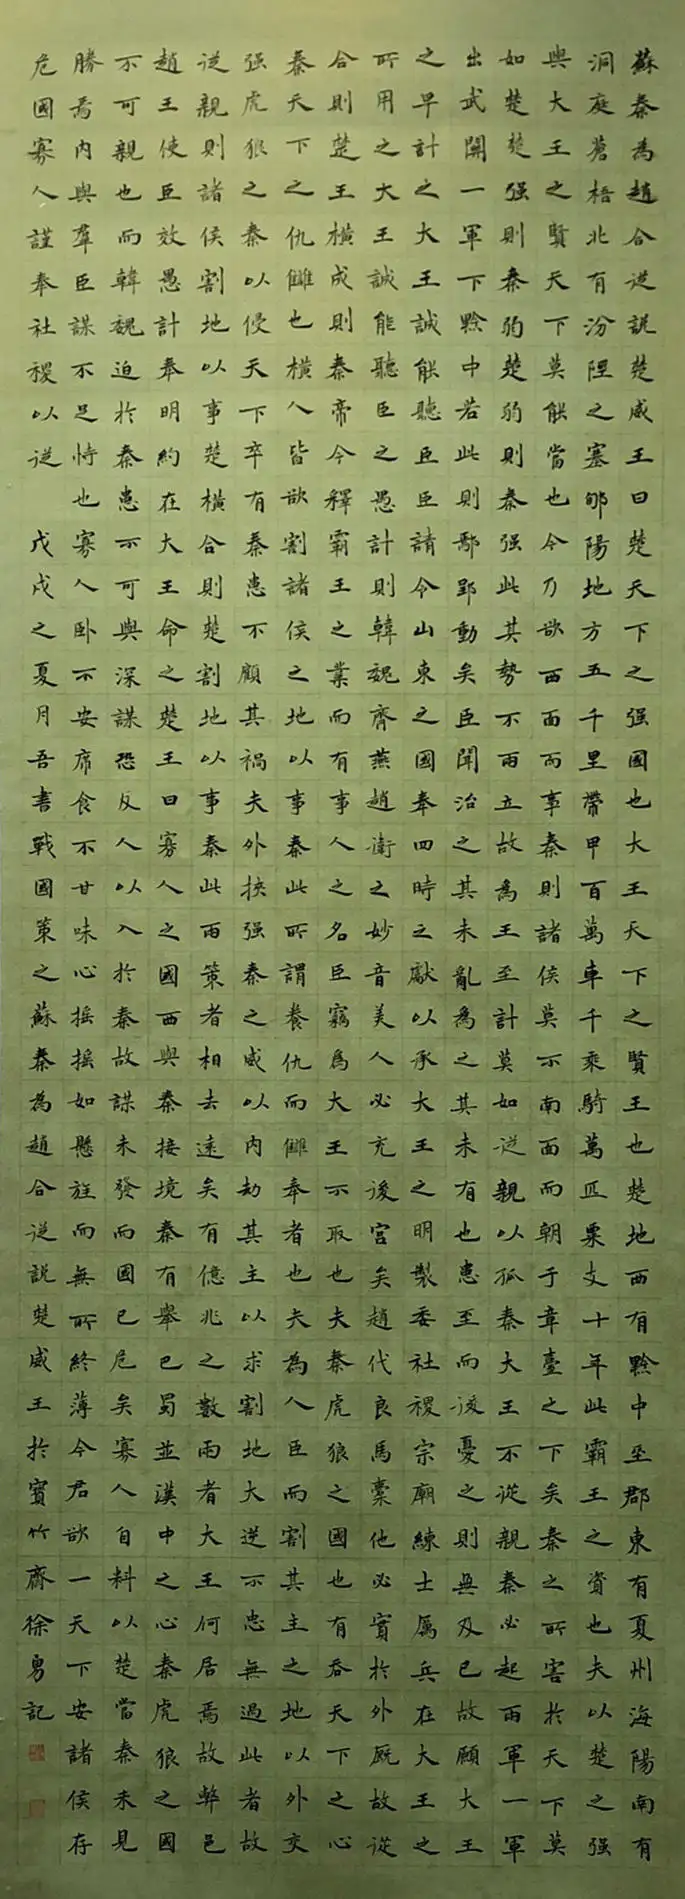 蘇秦為趙合從說楚威王曰楚天下之强國也大王天下之賢王也楚地西有黔中巫郡東有夏州海陽南有
洞庭蒼梧北有汾陘之塞郇陽地方五千里帶甲百萬車千乘騎萬匹粟支十年此霸王之資也夫以楚之强
與大王之賢天下莫能當也今乃欲西面而事秦則諸侯莫不南面而朝于章臺之下矣秦之所害於天下莫
如楚楚强則秦弱楚弱則秦强此其勢不兩立故為王至計莫如從親以孤秦大王不從親秦必起兩軍一軍
出武關一軍下黔中若此則鄢郢動矣臣聞治之其未亂為之其未有也患至而後憂之則無及已故願大王
之早計之大王誠能聽臣臣請令山東之國奉四時之獻以承大王之明製委社稷宗廟練士厲兵在大王之
所用之大王誠能聽臣之愚計則韓魏齊燕趙衛之妙音美人必充後宮矣趙代良馬橐他必實於外厩故從
合則楚王橫成則秦帝今釋霸王之業而有事人之名臣竊為大王不取也夫秦虎狼之國也有吞天下之心
秦天下之仇雠也橫人皆欲割諸侯之地以事秦此所謂養仇而雠奉者也夫為人臣而割其主之地以外交
强虎狼之秦以侵天下卒有秦患不顧其禍夫外挾强秦之威以內劫其主以求割地大逆不忠無過此者故
從親則諸侯割地以事楚橫合則楚割地以事秦此兩策者相去遠矣有億兆之數兩者大王何居焉故弊邑
趙王使臣效愚計奉明約在大王命之楚王曰寡人之國西與秦接境秦有舉巴蜀並漢中之心秦虎狼之國
不可親也而韓魏迫於秦患不可與深謀恐反人以入於秦故謀未發而國已危矣寡人自料以楚當秦未見
勝焉內與羣臣謀不足恃也寡人卧不安席食不甘味心搖搖如懸旌而無所終薄今君欲一天下安諸侯存
危國寡人謹奉社稷以從 戊戌之夏月吾書戰國策之蘇秦為趙合從說楚威王於賓竹齋徐勇記